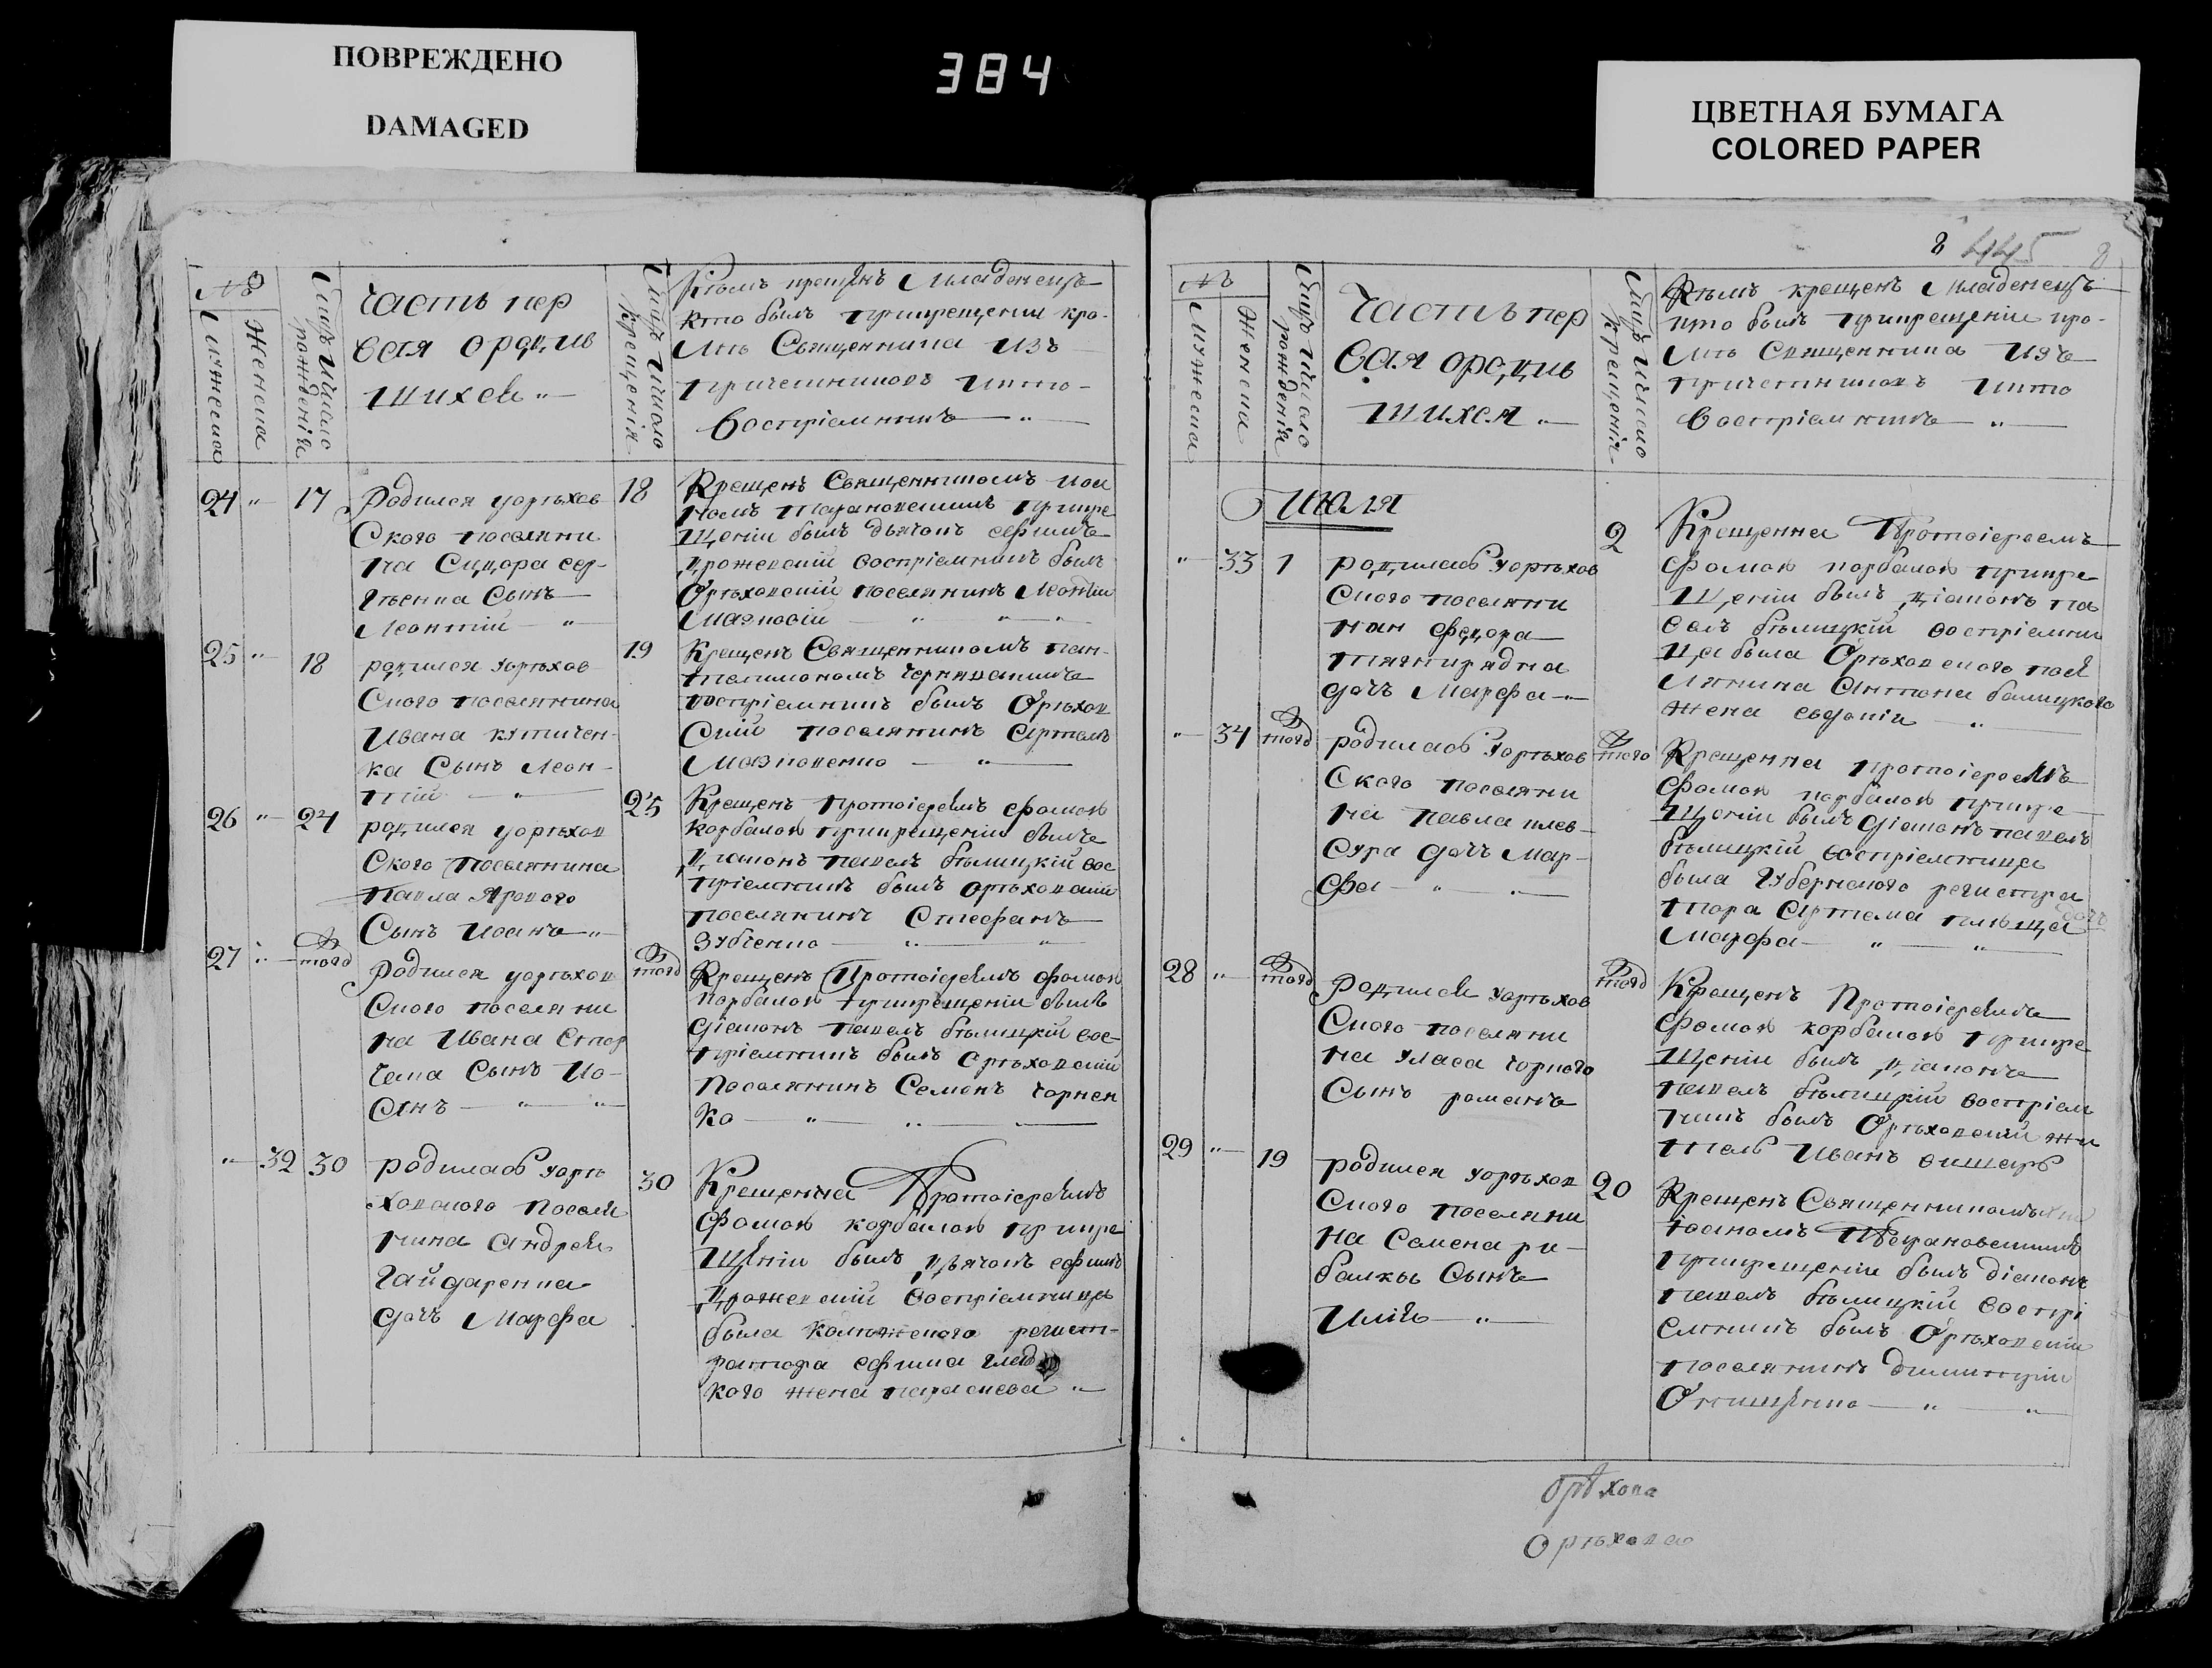 ПОВРЕЖДЕНО
DAMAGED
384
ЦВЕТНАЯ БУМАГА
COLORED PAPER
8 445 8
№
Мужеска
Женска
Мцъ Ичисло рожденія
Часть пер
вая ородив
шихся "
Мцъ Ичисло крещенія
Кѣмъ крещенъ Младенецъ
кто былъ припрещении кро-
мѣ Священника Изъ
причетниковъ Икто-
воспріемникъ "
24 " 17
Родился уорѣхов
ского поселяни
на Сидора сер-
гѣенка Сынъ
Леонтий "
18
Крещенъ Священникомъ Иоа
номъ Тарановскимъ прикре
щеніи былъ дьячокъ ефимъ
дрожевский воспріемникъ былъ
Орѣховскій поселянинъ Леонтій
25 " 18
родился уорѣхов
ского поселянина
Ивана кутичен-
ка Сынъ Леон-
тий "
19
Крещенъ Священникомъ пан-
телимономъ
воспріемникъ былъ Орѣхов
Скій поселянинъ Артемъ
Мазнованко "
26 " 24
родился уорѣхов
ского поселянина
Павла Ярового
Сынъ Иоанъ "
25
Крещенъ Протоіереемъ фомою
корбаною прикрещеніи былъ
діаконъ павелъ бѣлицкій вос
пріемникъ былъ орѣховский
поселянинъ Стефанъ
Зубченко " "
27 " Того
Родился уорѣхов
ского поселяни
на Ивана
Сынъ Ио-
анъ " "
Того
Крещенъ Протоіереемъ фомою
корбаною прикрещеніи былъ
діаконъ павелъ бѣлицкій вос-
пріемникъ былъ орѣховскій
Поселянинъ Семенъ Чорнен
ко " " "
" 32 30
родилась уорѣ
ховского поселя
нина Андрея
гайдаренка
дочъ Марфа
30
Крещенна Протоіереемъ
фомою корбаною прикре
щеніи былъ дьячокъ ефимъ
дрожевский воспріемница
была колежского регист-
ратора ефима глад
кого жена параскева "
№
Мужеска
Женска
Мцъ Ичисло рожденія
Часть пер
вая ородив
шихся "
Мцъ Ичисло крещенія
Кѣмъ крещенъ Младенецъ
кто былъ прикрещеніи кро-
мѣ Священника Изъ
причетниковъ Икто
воспріемникъ "
Июля
" 33 1
родилась уорѣхов
ского поселяни
на федора
дочъ Марфа "
2
Крещенна Протоіереемъ
фомою корбаною прикре
щеніи былъ діаконъ па
велъ бѣлицкій воспріемни
ца была Орѣховского посе
лянина Антона
жена евдокія "
" 34 Того
родилась уорѣхов
ского поселяни
на павла
дочъ Мар-
фа " "
Того
Крещенна протоіереемъ
фомою корбаною прикре
щеніи былъ діаконъ павелъ
бѣлицкій воспріемница
была губернского регистра
тора Артема дочъ
Марфа " "
28 " Того
Родился уорѣхов
ского поселяни
на уласа чорного
Сынъ романъ
Того
Крещенъ Протоіереемъ
фомою корбаною прикре
щеніи былъ діаконъ
павелъ бѣлицкій воспріем
никъ былъ Орѣховскій жи
тель Иванъ
29 " 19
родился уорѣхов
ского поселяни
на Семена ри-
балки Сынъ
Илія "
20
Крещенъ Священникомъ
Іоаномъ Тарановскимъ
прикрещеніи былъ діаконъ
павелъ бѣлицкій воспрі
емникъ былъ Орѣховскій
поселянинъ димитрій
Онищенко " "
Орѣхова
Орѣхова